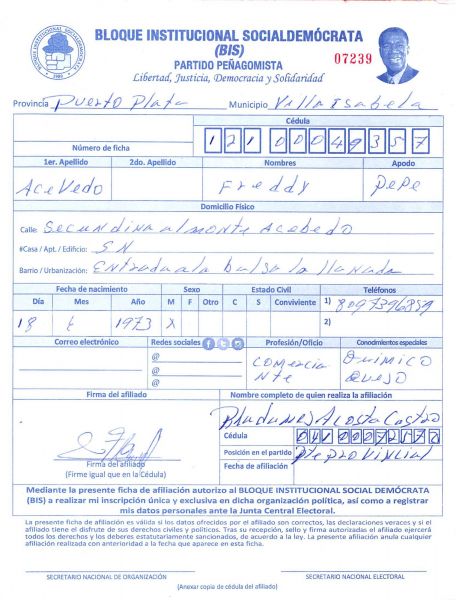 BLOQUE INSTITUCIONAL SOCIALDEMÓCRATA
(BIS)
PARTIDO PEÑAGOMISTA
07239
Libertad, Justicia, Democracia y Solidaridad
Provincia Puerto Plata Municipio Villa Isabela
Cédula
Número de ficha 121 0004935 7
1er. Apellido 2do. Apellido Nombres Apodo
Acevedo Freddy Pepe
Domicilio Físico
Calle: Secundina almonte Acebedo
#Casa / Apt. / Edificio: SN
Barrio / Urbanización: Entrada a la balsa la llanada
Fecha de nacimiento Sexo Estado Civil Teléfonos
Día Mes Año M F Otro C S Conviviente 1) 8097396859
18 1973 X 2)
Correo electrónico Redes sociales Profesión/Oficio Conocimientos especiales
@ Comercia Químico
@ nte Queso
@
Firma del afiliado Nombre completo de quien realiza la afiliación
Rhadames Acosta Castro
Cédula 041
Firma del afiliado Posición en el partido Pte Provincial
(Firme igual que en la Cédula) Fecha de afiliación
Mediante la presente ficha de afiliación autorizo al BLOQUE INSTITUCIONAL SOCIAL DEMÓCRATA
(BIS) a realizar mi inscripción única y exclusiva en dicha organización política, así como a registrar
mis datos personales ante la Junta Central Electoral.
La presente ficha de afiliación es válida si los datos ofrecidos por el afiliado son correctos, las declaraciones veraces y si el
afiliado tiene el disfrute de sus derechos civiles y políticos. Tras su recepción, sello y firma autorizadas el afiliado ejercerá
todos los derechos y los deberes estatutariamente sancionados, de acuerdo a la ley. La presente afiliación anula cualquier
afiliación realizada con anterioridad a la fecha que aparece en esta ficha.
SECRETARIO NACIONAL DE ORGANIZACIÓN SECRETARIO NACIONAL ELECTORAL
(Anexar copia de cédula del afiliado)